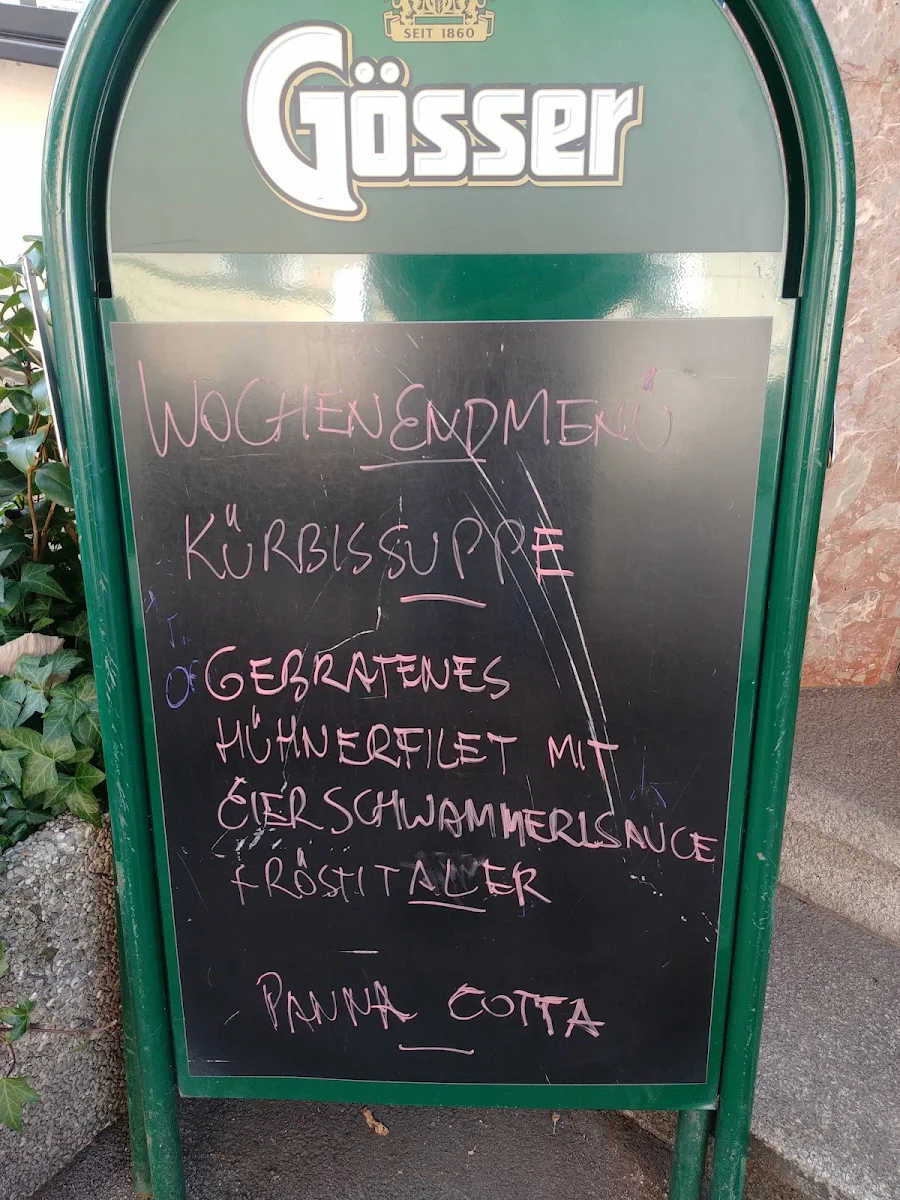 SEIT 1860
Gösser
WOCHENENDMENÜ
KÜRBISSUPPE
GEBRATENES
HÜHNERFILET MIT
EIERSCHWAMMERLSAUCE
+ RÖSTITALER
PANNA COTTA